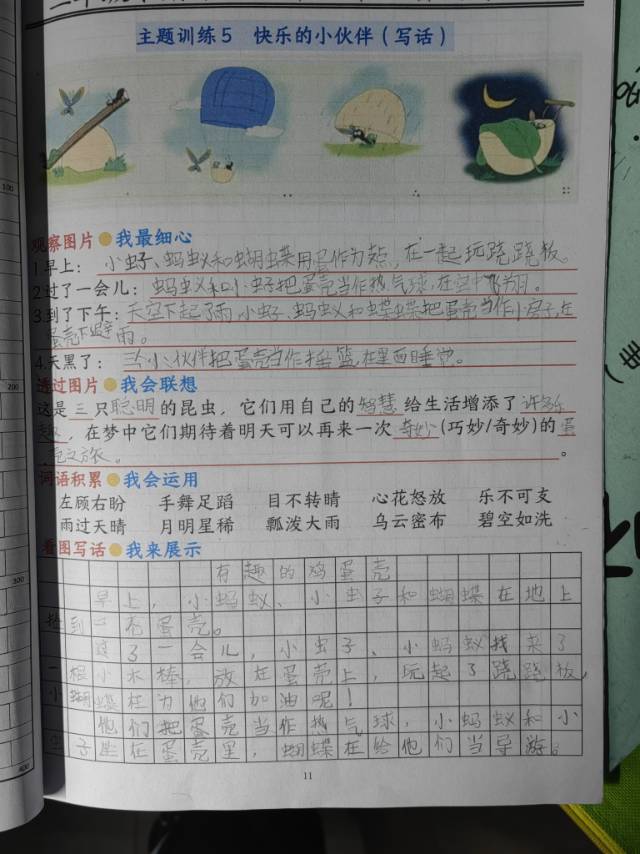 主题训练5 快乐的小伙伴（写话）
观察图片 我最细心
1早上：小虫子、蚂蚁和蝴蝶用蛋作为点，在一起玩跷跷板。
2过了一会儿：蚂蚁和小虫子把蛋壳当作热气球，在空中飞翔。
3.到了下午：天空下起了雨，小虫子、蚂蚁和蝶把蛋壳当作小房子，在
蛋壳下避雨。
4.天黑了：三个小伙伴把蛋壳当作摇篮，在里面睡觉。
透过图片 我会联想
这是三只聪明的昆虫，它们用自己的智慧给生活增添了许多乐
趣，在梦中它们期待着明天可以再来一次奇妙(巧妙/奇妙)的蛋
壳之旅。
词语积累 我会运用
左顾右盼 手舞足蹈 目不转晴 心花怒放 乐不可支
雨过天晴 月明星稀 瓢泼大雨 乌云密布 碧空如洗
看图写话 我来展示
有趣的鸡蛋壳
早上，小蚂蚁、小虫子和蝴蝶在地上
捡到一布蛋壳。
过了一会儿，小虫子、小蚂蚁找来了
一根小木棒，放在蛋壳上，玩起了跷跷板，
小蝴蝶在为他们加油呢！
他们把蛋壳当作热气球，小蚂蚁和小
虫子坐在蛋壳里，蝴蝶在给他们当导游。
11
100
200
300
400